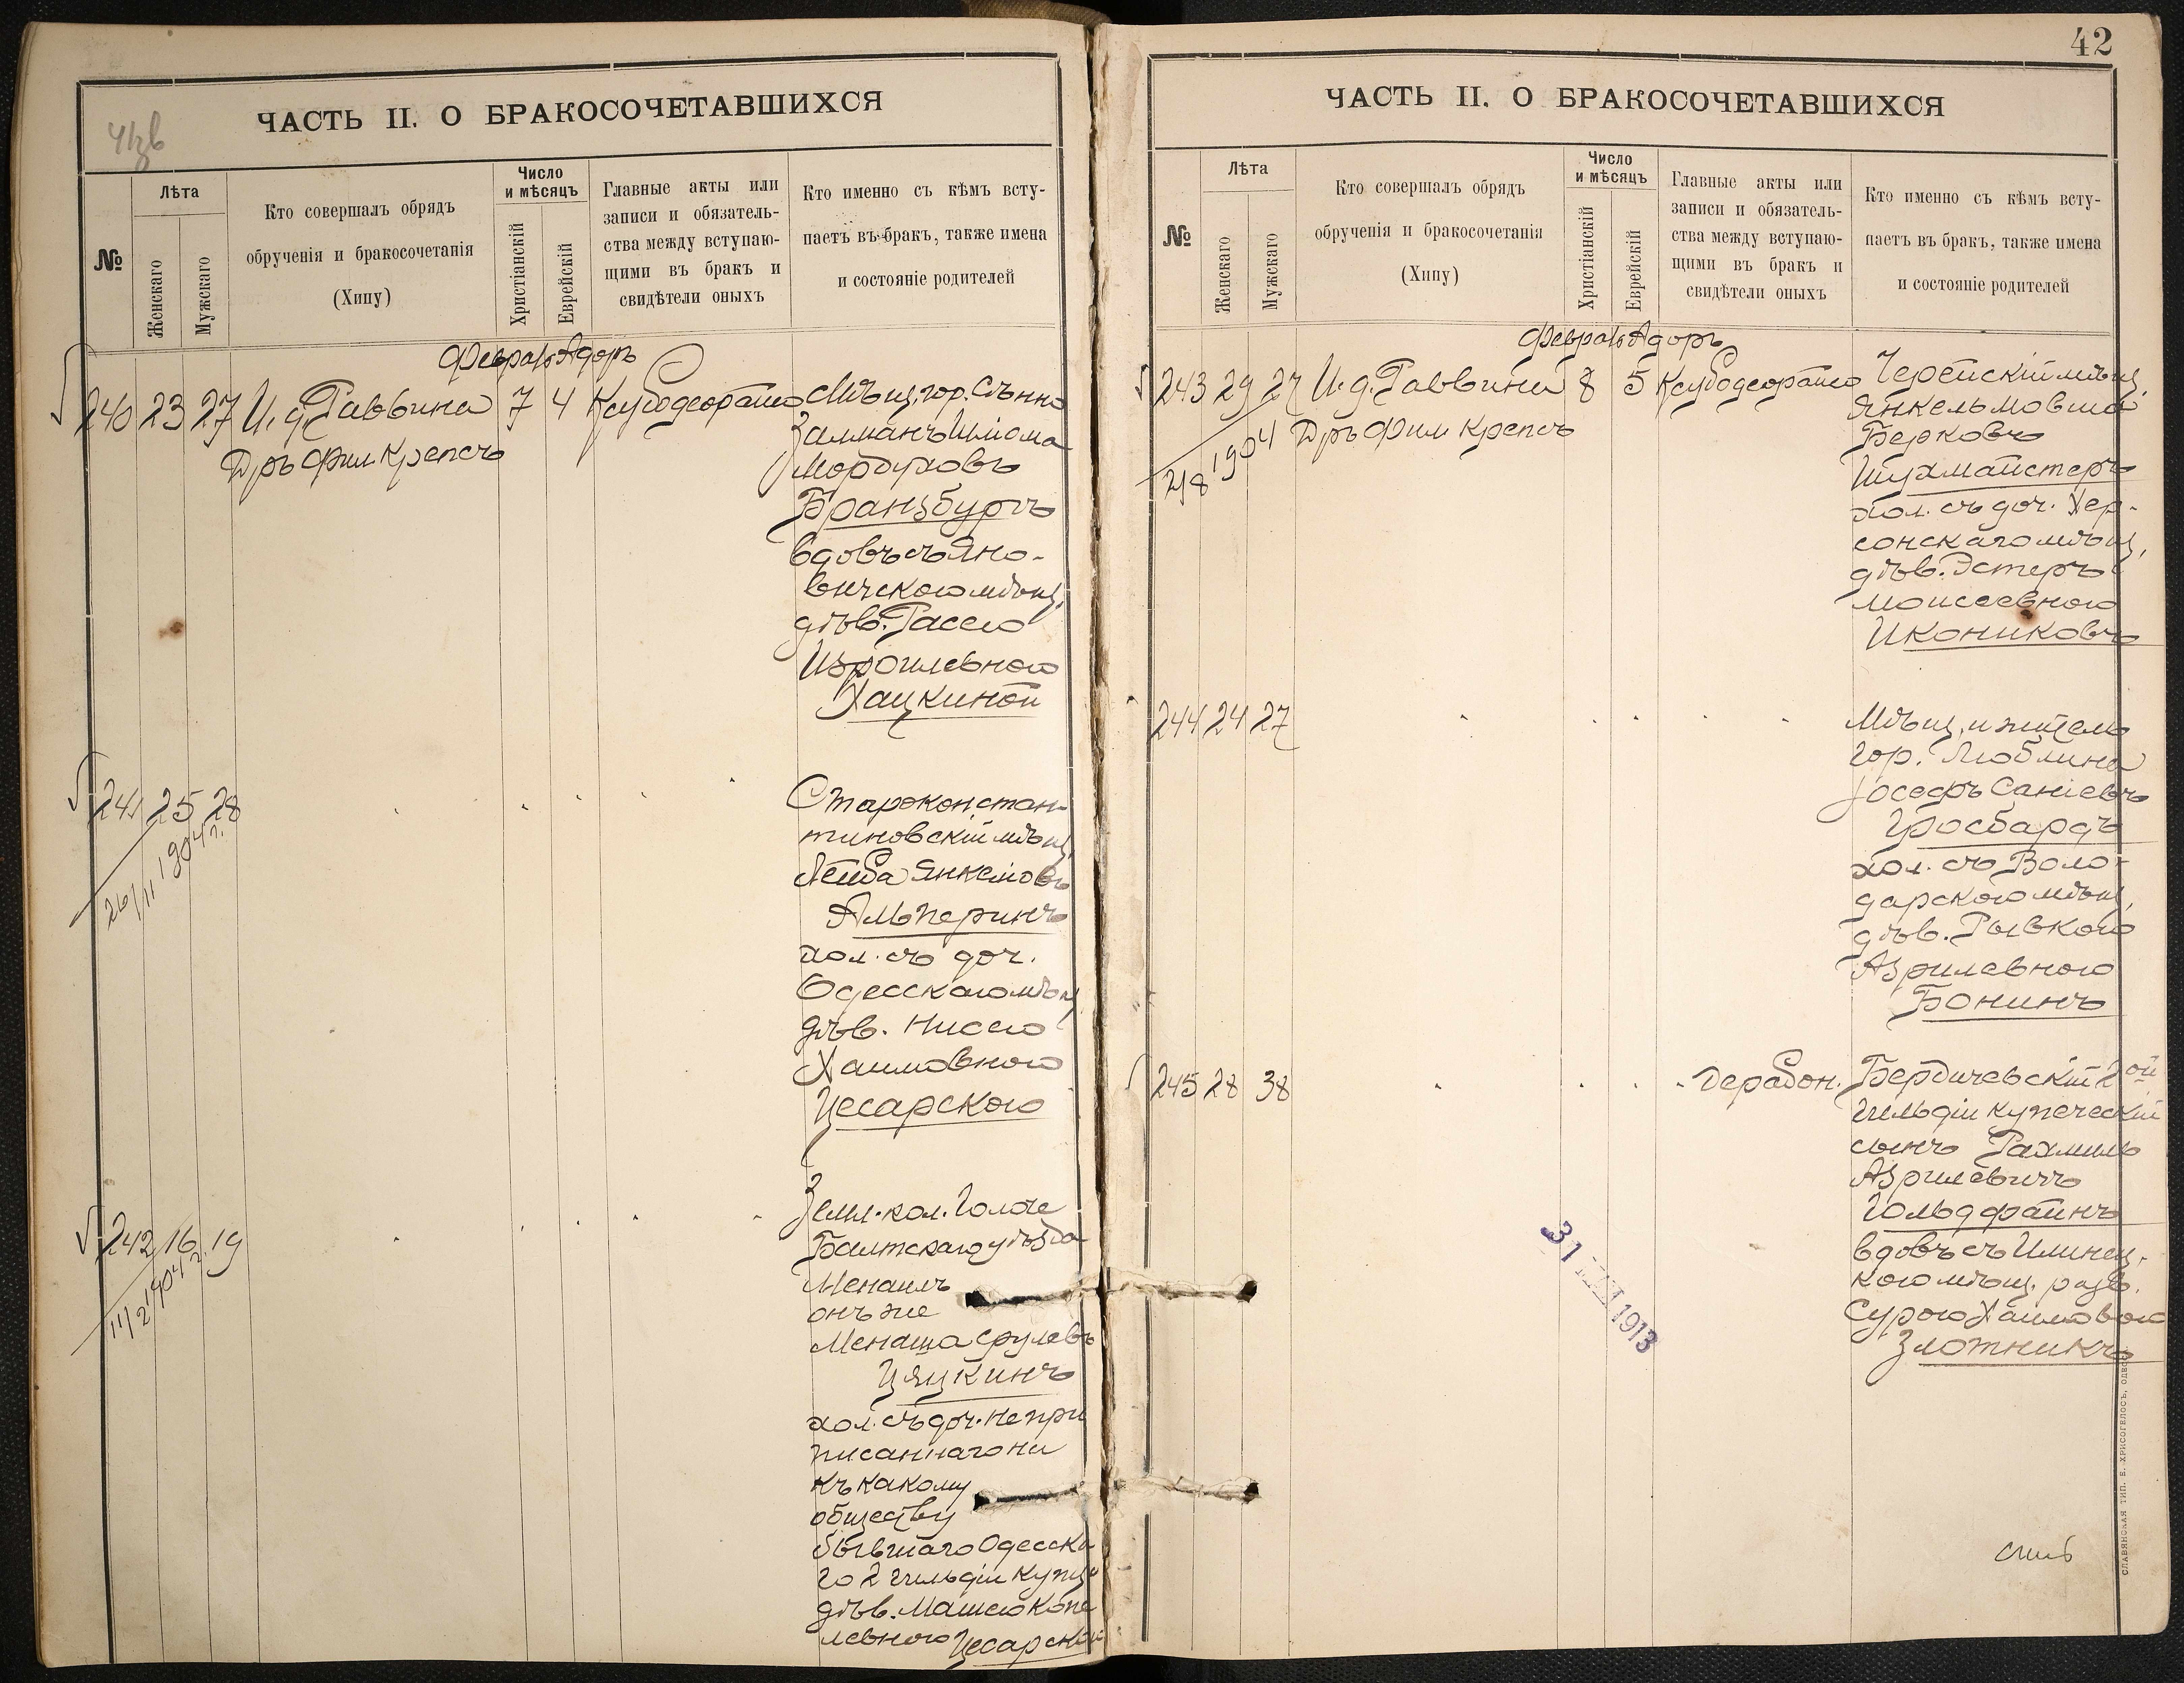 ЧАСТЬ II. О БРАКОСОЧЕТАВШИХСЯ
№
Лѣта
Женскаго
Мужскаго
Кто совершалъ обрядъ
обрученія и бракосочетанія
(Хипу)
Число
и мѣсяцъ
Христіанскій
Еврейскій
Главные акты или
записи и обязатель-
ства между вступаю-
щими въ бракъ и
свидѣтели оныхъ
Кто именно съ кѣмъ всту-
паетъ въ бракъ, также имена
и состояніе родителей
240 23 27 И. д. Раввина 7 4
Дръ Фил Крепсъ
Мѣщ. гор. Сѣнно
Залманъ Шлома
Мордуховъ
Бранзбургъ
вдовъ съ Яно-
вичскою мѣщ.
дѣв. Рассею
Изроилевною
Хацкиной
241 25 28
26/11 1904 г.
Староконстан-
тиновскій мѣщ.
Лейба Янкелов
Альперинъ
хол. съ доч.
Одесскаго мѣщ
дѣв. Нисею
Хаимовною
Цесарскою
242 16 19
11/2 1904 г.
Земл. кол.
Балтскаго уѣзда
Менаилъ
онъ же
Менаша Срулевъ
Цяцкинъ
хол. съ доч. непри
писаннаго ни
къ какому
обществу
бывшаго Одесска
го 2 гильдіи купца
дѣв. Машею Копе
левною Цесарской
42
ЧАСТЬ II. О БРАКОСОЧЕТАВШИХСЯ
№
Лѣта
Женскаго
Мужскаго
Кто совершалъ обрядъ
обрученія и бракосочетанія
(Хипу)
Число
и мѣсяцъ
Христіанскій
Еврейскій
Главные акты или
записи и обязатель-
ства между вступаю-
щими въ бракъ и
свидѣтели оныхъ
Кто именно съ кѣмъ всту-
паетъ въ бракъ, также имена
и состояніе родителей
243 29 27 И. д. Раввина 8 5
Дръ Фил Крепсъ
1904
Черейскій мѣщ.
Янкель Мовша
Берковъ
Шухмайстеръ
хол. съ доч. Хер-
сонскаго мѣщ.
дѣв. Эстеръ
Моисеевною
Икониковъ
244 24 27
Мѣщ. и житель
гор. Люблина
Іосефъ Саніевъ
Гросбардъ
хол. съ Воло-
дарскою мѣщ.
дѣв. Рывкою
Азрилевною
Бонинъ
245 28 38
Дерабон.
Бердичевскій 2ой
гильдіи купеческій
сынъ Рахмиль
Азрилевичъ
Гольдфайнъ
вдовъ съ Илинец-
кою мѣщ. разв.
Сурою Хаимовою
Злотникъ
31 1913
СЛАВЯНСКАЯ ТИП. Е. ХРИСОГЕЛОСЪ, ОДЕССА